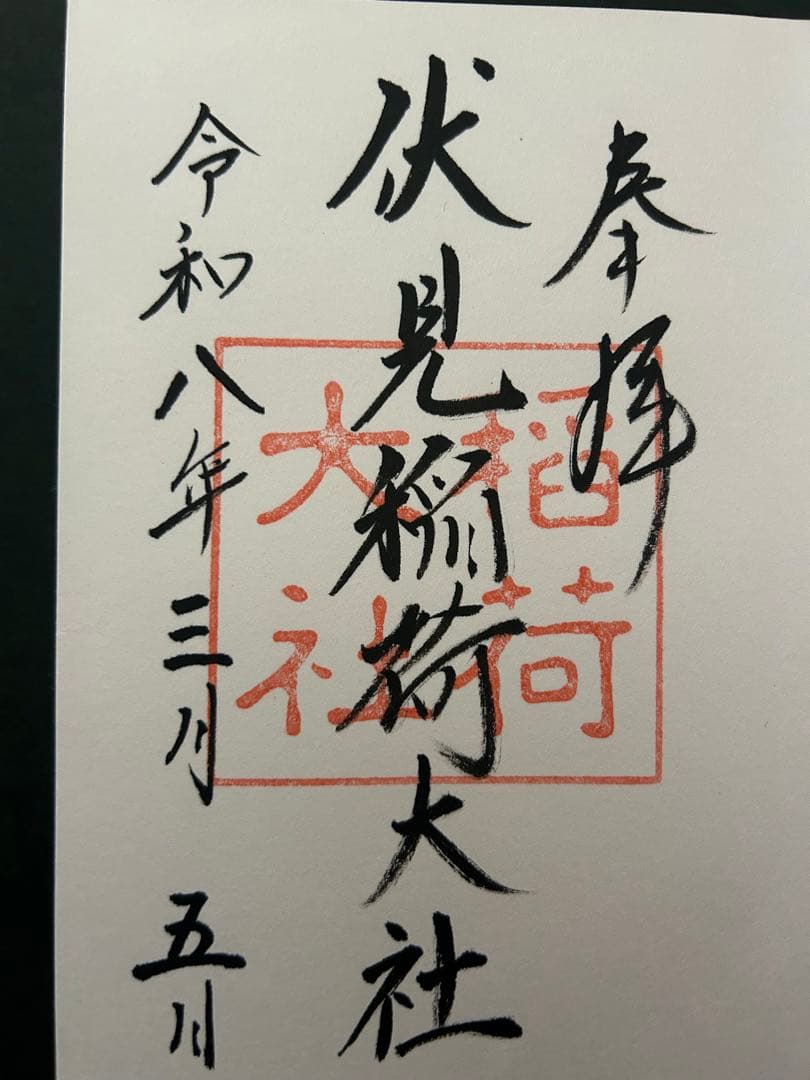 奉拝
伏見稲荷大社
令和八年三月五日
稲荷
大社